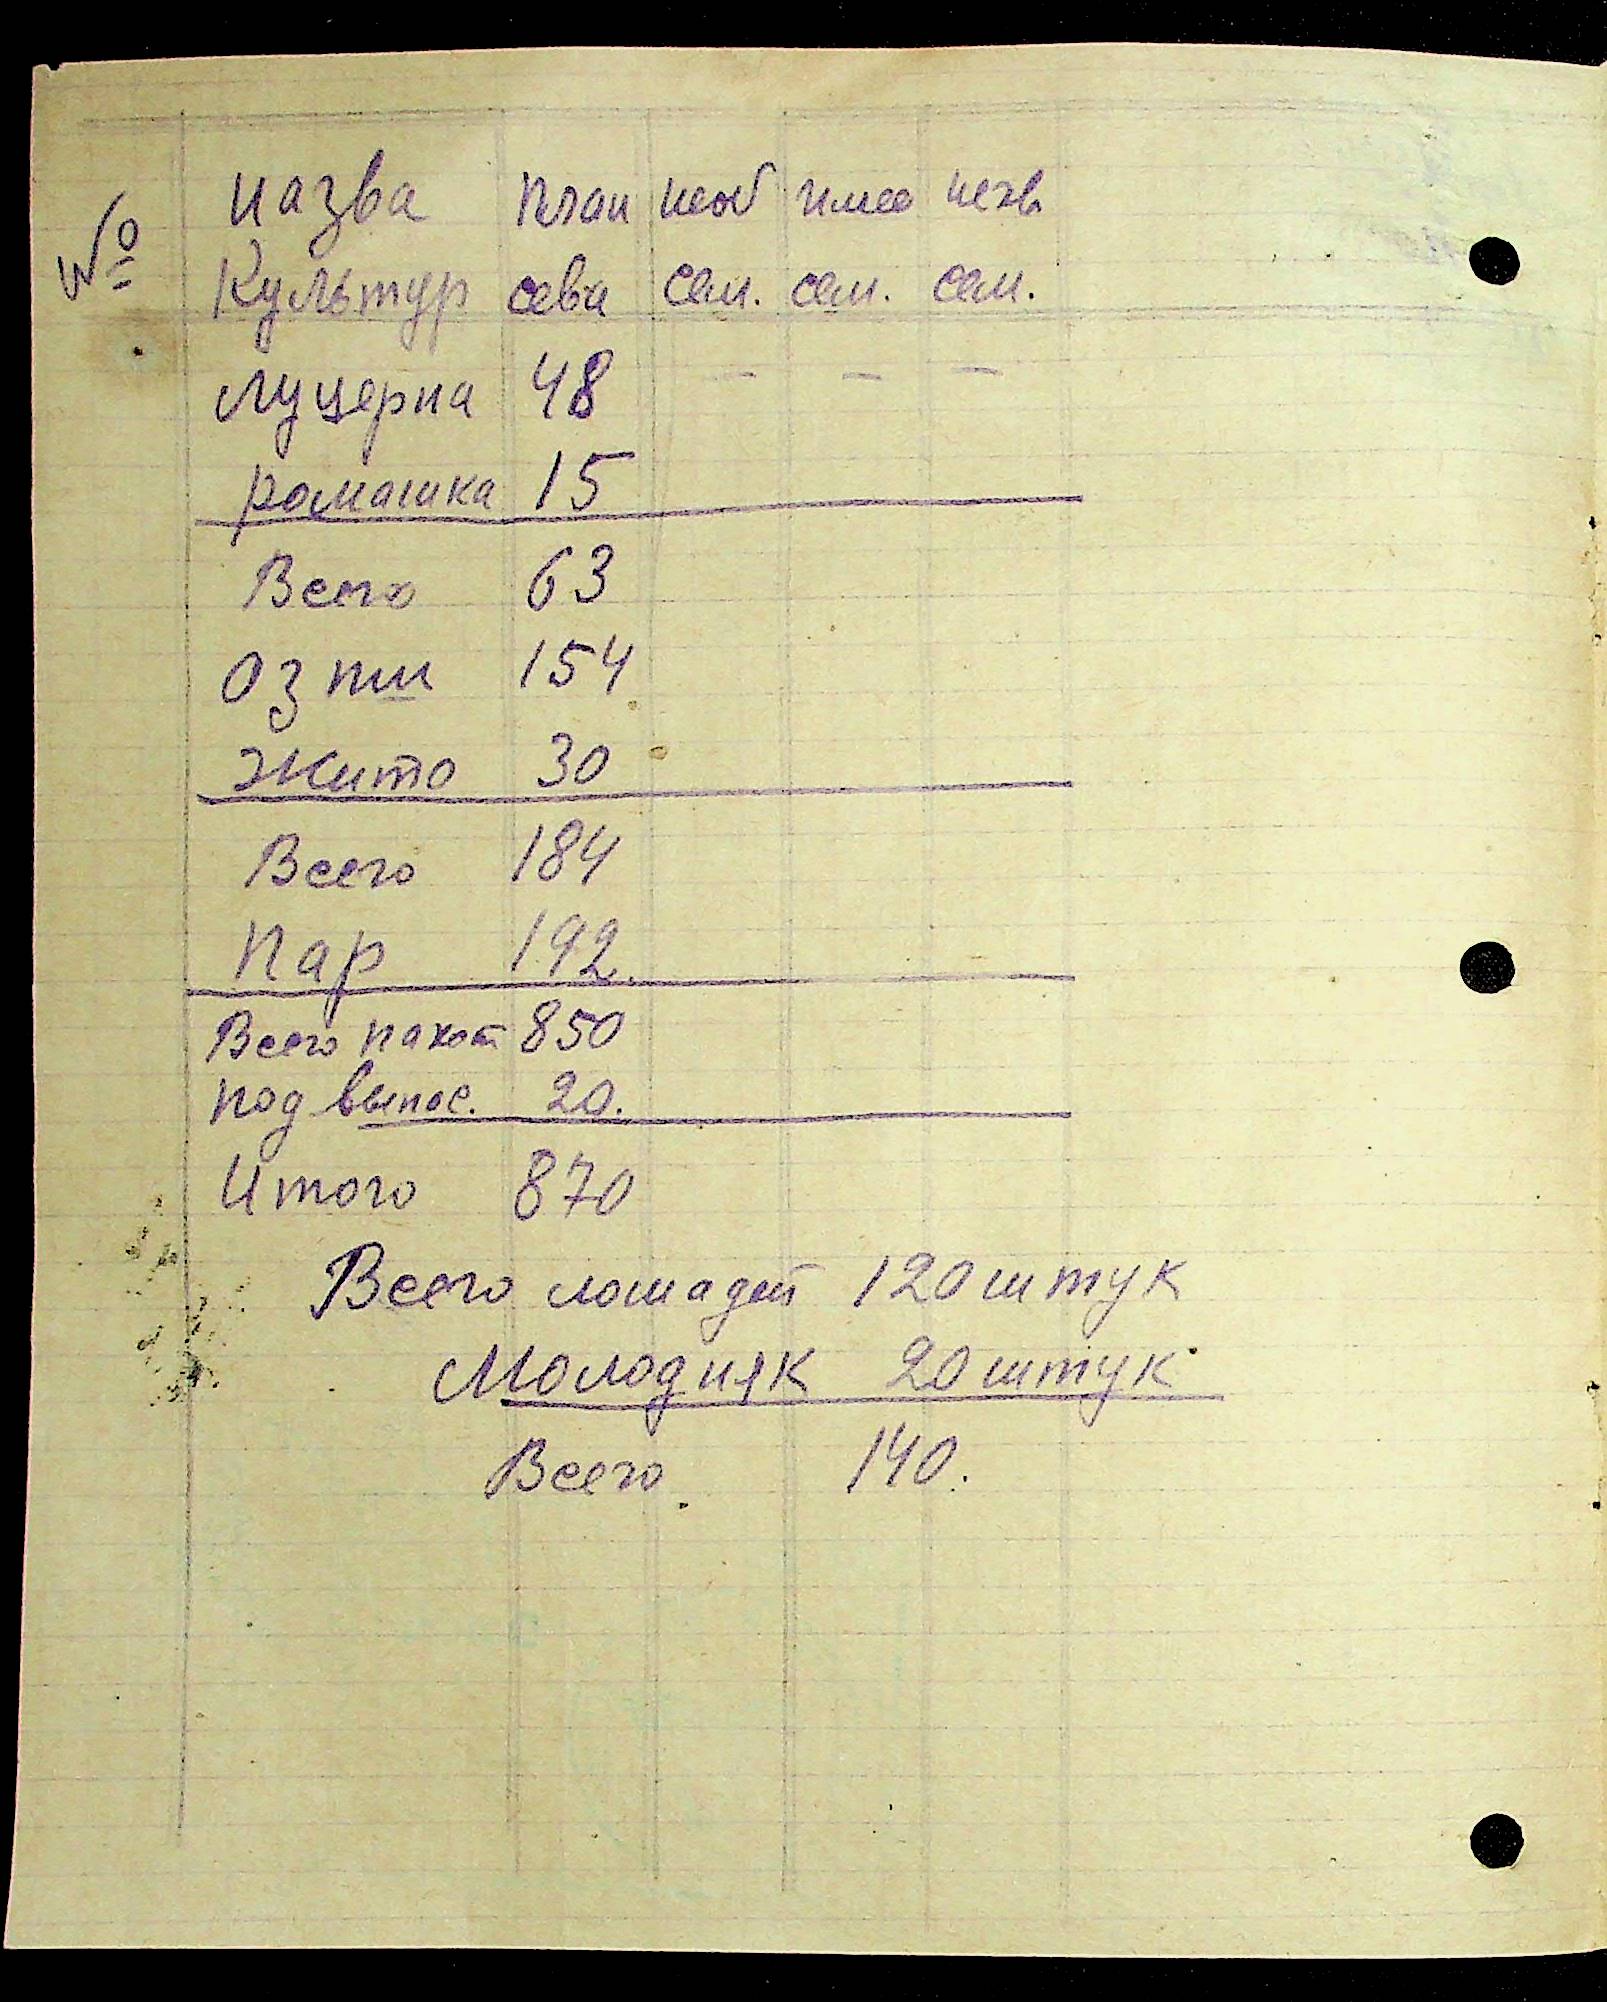 № назва план необ имее нехв
культур сева сем. сем. сем.
Луцерна 48 – – –
ромашка 15
Всего 63
Оз пш 154
Жито 30
Всего 184
Пар 192.
Всего пахот 850
под выпас. 20.
Итого 870
Всего лошадей 120 штук
Молодняк 20 штук
Всего. 140.